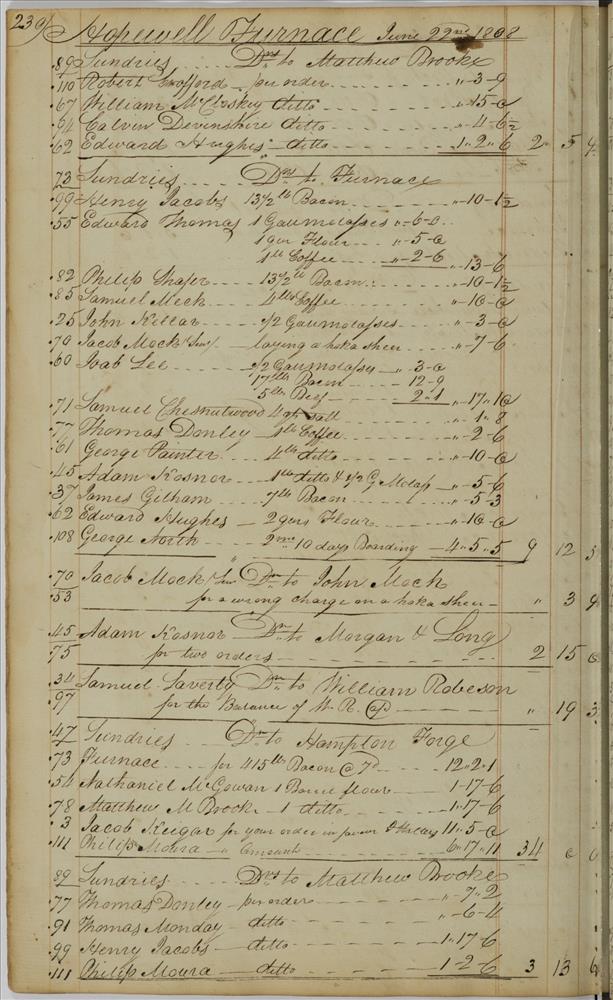 239 Hopewell Furnace June 22nd 1808
.89 Sundries .... Drs to Matthew Brooke
.110 Robert Crofford - per order ---- " - 3 - 9
.67 William McCloskey ditto ---- " - 15 - 0
.94 Calvin Devenshire ditto ---- " - 4 - 6½
.62 Edward Hughes - ditto ---- 1 " 2 " 6 2 5 4
73 Sundries .... Drs to Furnace
.99 Henry Jacobs 13½ lb Bacon ---- " - 10 - 1½
.55 Edward Thomas 1 Gall molasses " - 6 - 0
1 qur Flour ---- " - 5 - 0
1 lb Coffee ---- " - 2 - 6 " - 13 - 6
.82 Philip Shafer --- 13½ lb Bacon ---- " - 10 - 1½
.85 Samuel Mock --- 4 lbs Coffee ---- " - 10 - 0
.25 John Kellar --- ½ Gall molasses ---- " - 3 - 0
.70 Jacob Mock Senr - laying a hoka sheer ---- " - 7 - 6
.60 Joab Lee ---- ½ Gall molasses - " 3 - 0
17 lbs Bacon --- 12 - 9
5 lbs Beef --- 2 " 1 " - 17 " 10
.71 Samuel Chesnutwood 4 qts Salt " 1 " 8
.77 Thomas Donley - 1 lb Coffee ---- " - 2 - 6
.61 George Painter - 4 lb ditto ---- " - 10 - 0
.45 Adam Kosnor - 1 lb ditto & ½ G Molass - " - 5 - 6
.37 James Gilham - 7 lb Bacon ---- " - 5 " 3
.62 Edward Hughes - 2 qurs Flour ---- " - 10 - 0
.108 George North - 2 mo 10 days Boarding - 4 " 5 " 5 9 12 5
.70 Jacob Mock Senr Dr to John Mock
53 for a wrong charge on a hoka sheer - " 3 9
45 Adam Kosnor - Dr to Morgan & Long
75 for two orders ---- 2 15 0
.34 Samuel Laverty Dr to William Robeson
97 for the Balance of W. R. ---- " 19 3
.47 Sundries ... Drs to Hampton Forge
.73 Furnace --- for 415 lbs Bacon @ 7d --- 12 " 2 " 1
.54 Nathaniel McGowan 1 Barrel flour --- 1 - 17 - 6
.78 Matthew M Brooke - 1 ditto --- 1 " 17 - 6
. 3 Jacob Keugar for your order in favour 11 " 5 - 0
.111 Philip Moura - " Amount --- 6 " 17 " 11 34 0 0
89 Sundries .... Drs to Matthew Brooke
.77 Thomas Donley - per order ---- " - 7 " 2
.91 Thomas Monday - ditto ---- " - 6 - 4
.99 Henry Jacobs - ditto ---- 1 " 17 - 6
.111 Philip Moura - ditto ---- 1 - 2 - 6 3 13 6